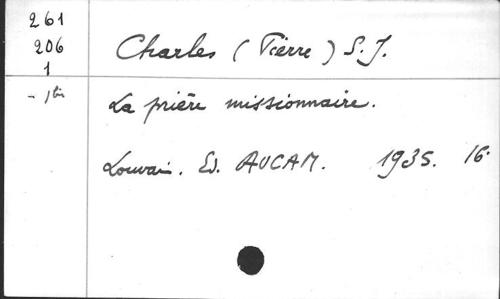 261
206
1
- 1bis
Charles (Pierre) S.J.
La prière missionnaire.
Louvain. Ed. AUCAM. 1935. 16.